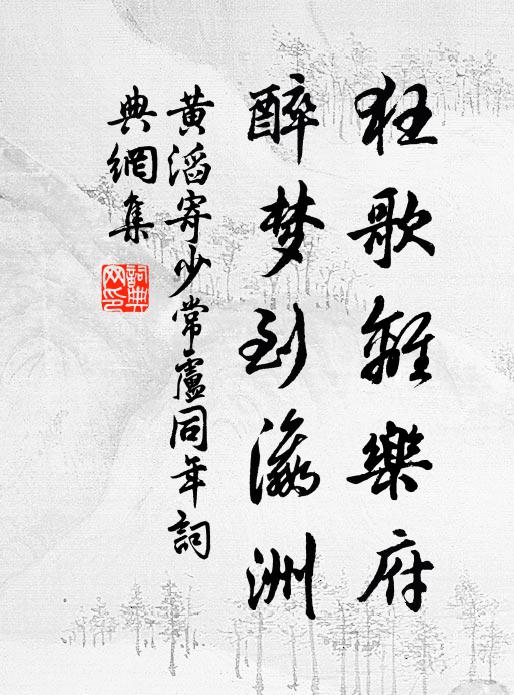 狂歌離樂府
醉梦到瀛洲
黄滔寄少常盧同年詞
典網集
詞典
网印